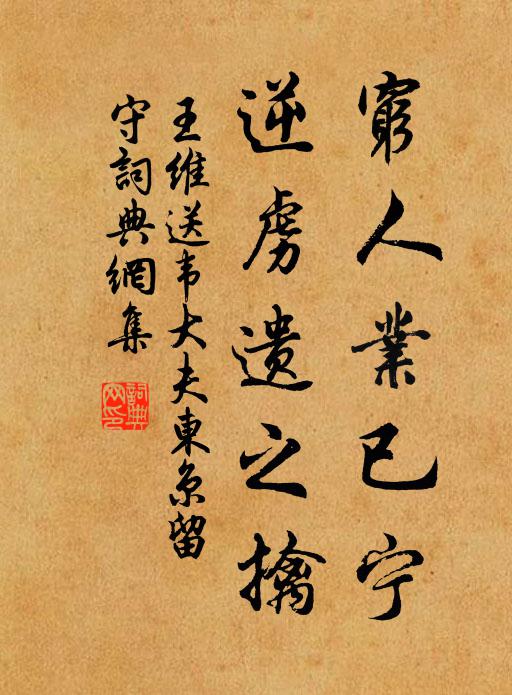 窮人業已宁
逆虜遺之擒
王維送韦大夫東京留
守詞典網集
詞典网印